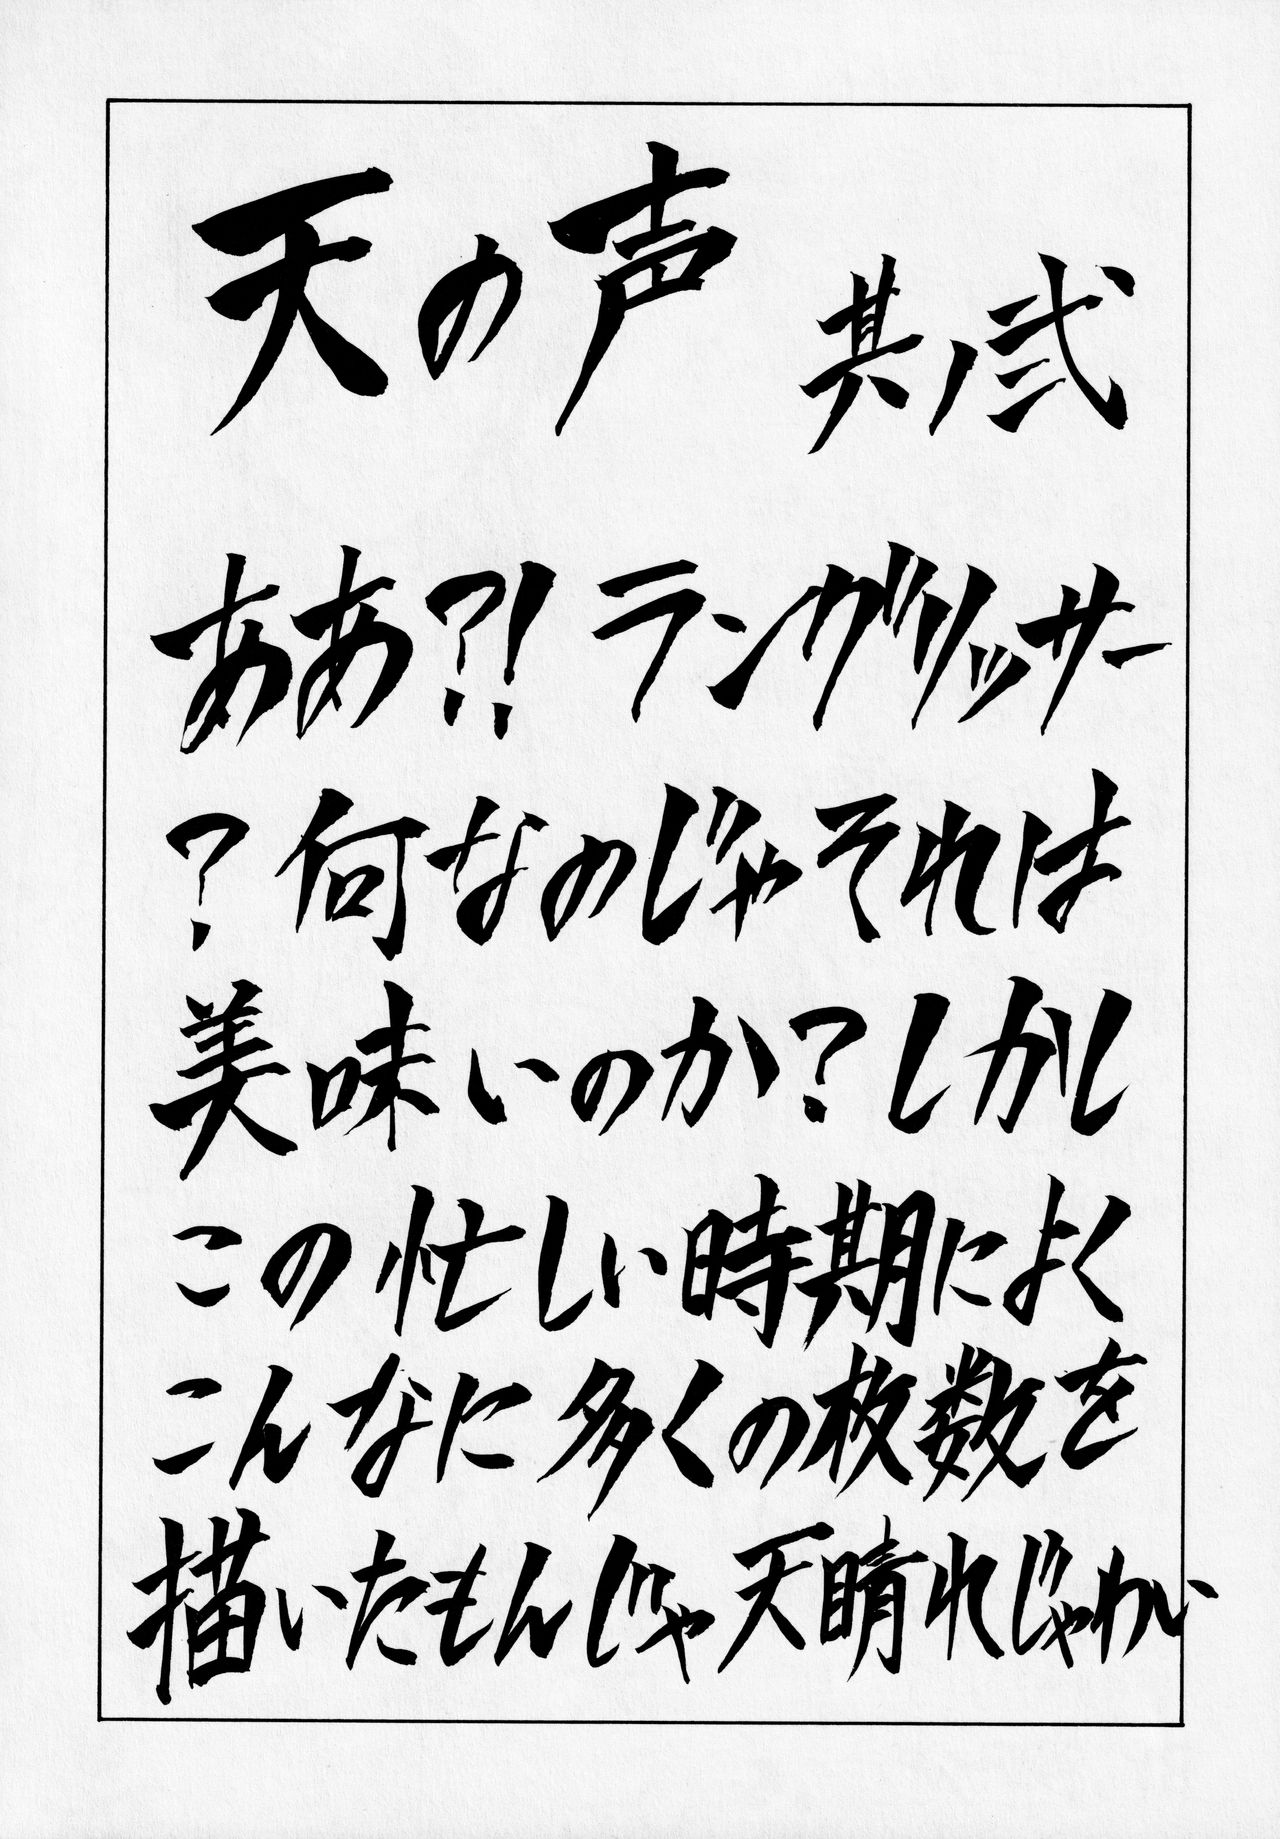 天の声 其ノ弐
ああ?! ラングリッサー
?何なのじゃそれは
美味いのか?しかし
この忙しい時期によく
こんなに多くの枚数を
描いたもんじゃ天晴れじゃわい